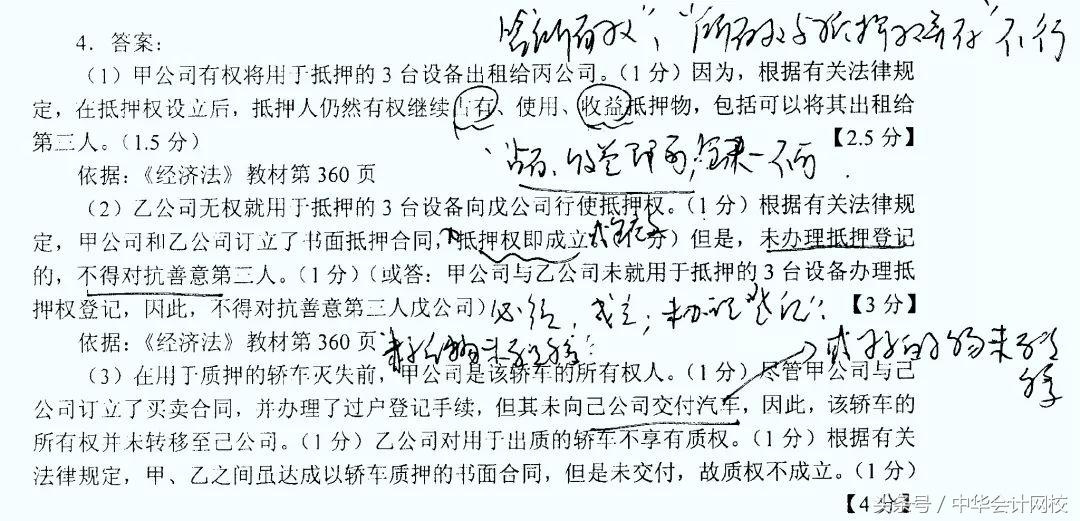 含"所有权"、"所有权与抵押权并存"不行
4．答案：
（1）甲公司有权将用于抵押的 3 台设备出租给丙公司。（1 分）因为，根据有关法律规
定，在抵押权设立后，抵押人仍然有权继续占有、使用、收益抵押物，包括可以将其出租给
第三人。（1.5 分）
【2.5 分】
占有、收益即可，
依据：《经济法》教材第 360 页
（2）乙公司无权就用于抵押的 3 台设备向戊公司行使抵押权。（1 分）根据有关法律规
定，甲公司和乙公司订立了书面抵押合同，抵押权即成立 分）但是，未办理抵押登记
的，不得对抗善意第三人。（1 分）（或答：甲公司与乙公司未就用于抵押的 3 台设备办理抵
押权登记，因此，不得对抗善意第三人戊公司）
未办理登记
【3 分】
依据：《经济法》教材第 360 页
（3）在用于质押的轿车灭失前，甲公司是该轿车的所有权人。（1 分）尽管甲公司与己
公司订立了买卖合同，并办理了过户登记手续，但其未向己公司交付汽车，因此，该轿车的
所有权并未转移至己公司。（1 分）乙公司对用于出质的轿车不享有质权。（1 分）根据有关
法律规定，甲、乙之间虽达成以轿车质押的书面合同，但是未交付，故质权不成立。（1 分）
【4 分】
头条号／中华会计网校